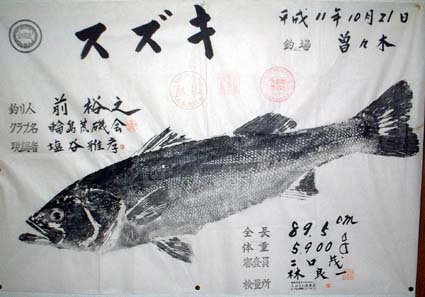 スズキ
平成11年10月21日
釣場 曽々木
釣り人 前 裕之
クラブ名 輪島荒磯会
現認者 塩谷雅彦
全長 89.5cm
体重 5,900g
審査員 三口茂
林良一
検量所